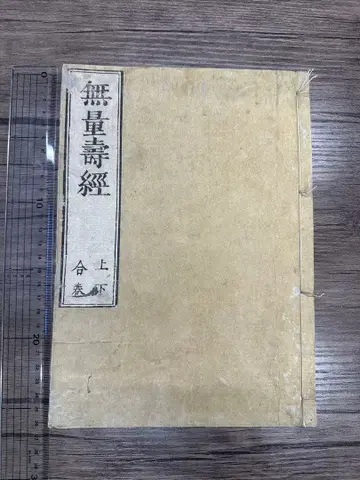 無量壽經
上下
合巻
0
10
20
3